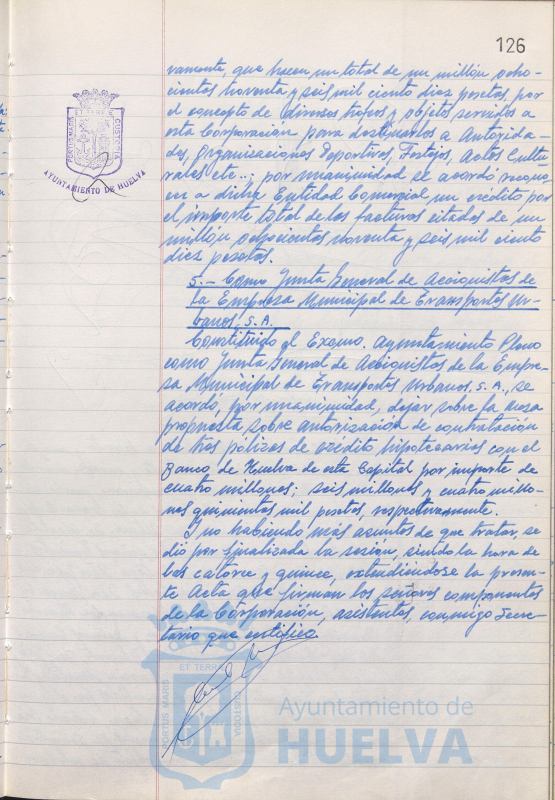 126
vamente, que hacen un total de un millón ocho-
cientas noventa y seis mil ciento diez pesetas, por
el concepto de diversos trofeos y objetos servidos a
esta Corporación para destinarlos a Autorida-
des, Organizaciones Deportivas, Festejos, Actos Cultu-
rales etc...; por unanimidad se acordó recono-
cer a dicha Entidad Comercial un crédito por
el importe total de las facturas citadas de un
millón ochocientas noventa y seis mil ciento
diez pesetas.
5.- Como Junta General de Accionistas de
la Empresa Municipal de Transportes Ur-
banos, S.A.
Constituido el Excmo. Ayuntamiento Pleno
como Junta General de Accionistas de la Empre-
sa Municipal de Transportes Urbanos, S.A., se
acordó, por unanimidad, dejar sobre la mesa
propuesta sobre autorización de contratación
de tres pólizas de crédito hipotecarias con el
Banco de Huelva de esta Capital por importe de
cuatro millones; seis millones y cuatro millo-
nes quinientas mil pesetas, respectivamente.
Y no habiendo más asuntos de que tratar, se
dió por finalizada la sesión, siendo la hora de
las catorce y quince, extendiéndose la presen-
te Acta que firman los señores componentes
de la Corporación, asistentes, conmigo Secre-
tario que certifico
PORTUS MARIS
ET TERRAE
CUSTODIA
AYUNTAMIENTO DE HUELVA
PORTUS MARIS
ET TERRAE
CUSTODIA
Ayuntamiento de
HUELVA